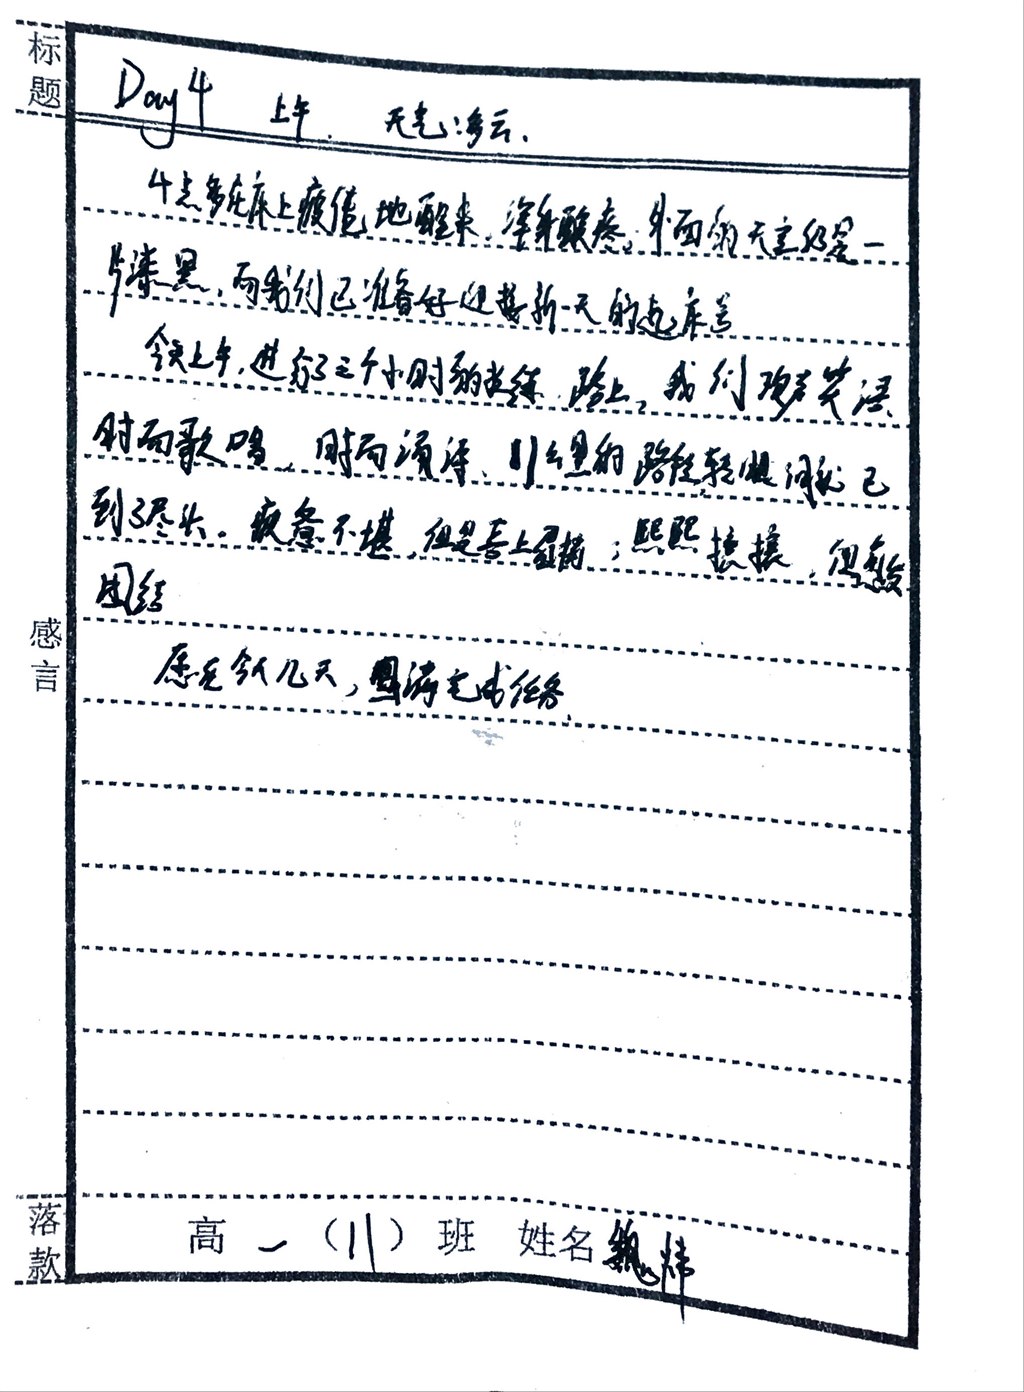 标题
Day4 上午. 天气:多云.
4点多在床上疲倦地醒来,浑身酸疼。外面的天空仍是一
片漆黑,而我们已准备好迎接新一天的
今天上午,进行了三个小时的拉练,路上,我们欢声笑语
时而歌唱,时而颂诗、11公里的路程,转眼间就已
到了尽头。疲惫不堪,但是喜上眉梢;熙熙攘攘,但
团结
感言
愿在今后几天,圆满完成任务.
落款
高一(11)班 姓名魏炜